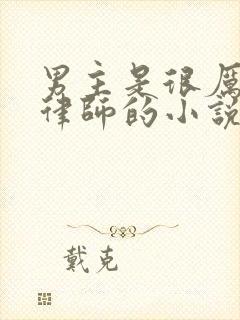 男主是很厲
律師的小說
戴克